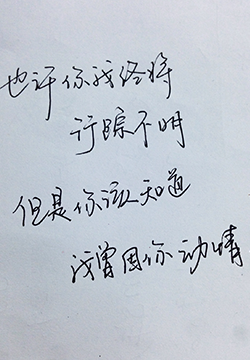 也许你我终将
行踪不明
但是你该知道
我曾因你动情